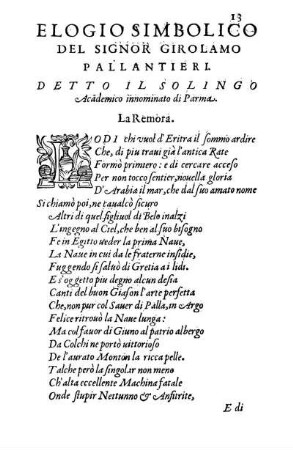 13
ELOGIO SIMBOLICO
DEL SIGNOR GIROLAMO
PALLANTIERI.
DETTO IL SOLINGO
Academico innominato di Parma.
La Remora.
LODI chi vuol d'Eritra il sommo ardire
Che, di piu travi già l'antica Rate
Formò primiero: e di cercare acceso
Per non tocco sentier, nouella gloria
D'Arabia il mar, che dal suo amato nome
Si chiamò poi, ne ualcò sicuro
Altri di quel figliuol di Belo inalzi
L'ingegno al Ciel, che ben al suo bisogno
Fe in Egitto ueder la prima Naue,
La Naue in cui da le fraterne insidie,
Fuggendo si saluò di Gretia a i lidi.
E s'oggetto piu degno alcun desia
Canti del buon Giason l'arte perfetta
Che, non pur col Sauer di Palla, in Argo
Felice ritrouò la Naue lunga:
Ma col fauor di Giuno al patrio albergo
Da Colchi ne portò uittorioso
De l'aurato Monton la ricca pelle.
Talche però la singolar non meno
Ch'alta eccellente Machina fatale
Onde stupir Nettunno & Anfitrite,
E di